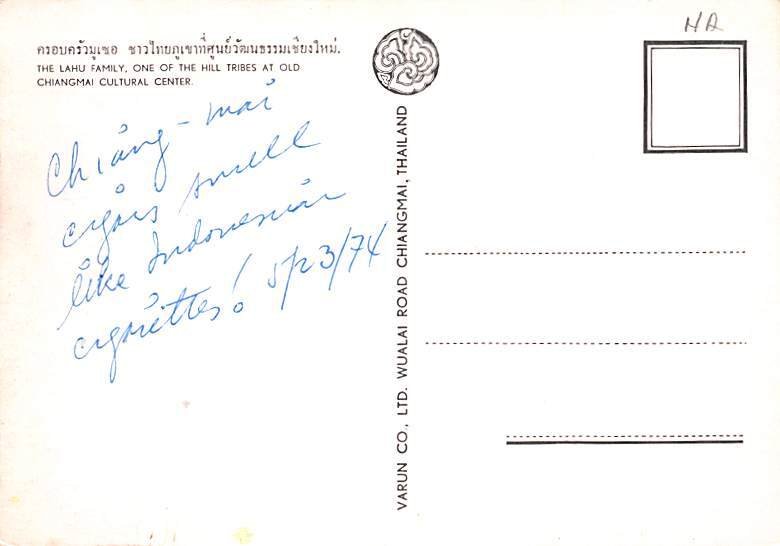 ครอบครัวมูเซอ ชาวไทยภูเขาที่ศูนย์วัฒนธรรมเชียงใหม่.
THE LAHU FAMILY, ONE OF THE HILL TRIBES AT OLD
CHIANGMAI CULTURAL CENTER.
Chiang-mai
cigars smell
like Indonesian
cigarettes! 5/23/74
VARUN CO., LTD. WUALAI ROAD CHIANGMAI, THAILAND
NA